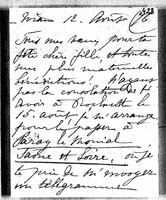 12. Août
Tous mes vœux pour ta
fête chère fille
les plus maternelles
bénédictions! N'ayant
pas la consolation de t'
avoir à
15. août je m'arrange
pour la passer à
Paray le Monial
Saône et Loire, où je
te prie de m'envoyer
un télégramme